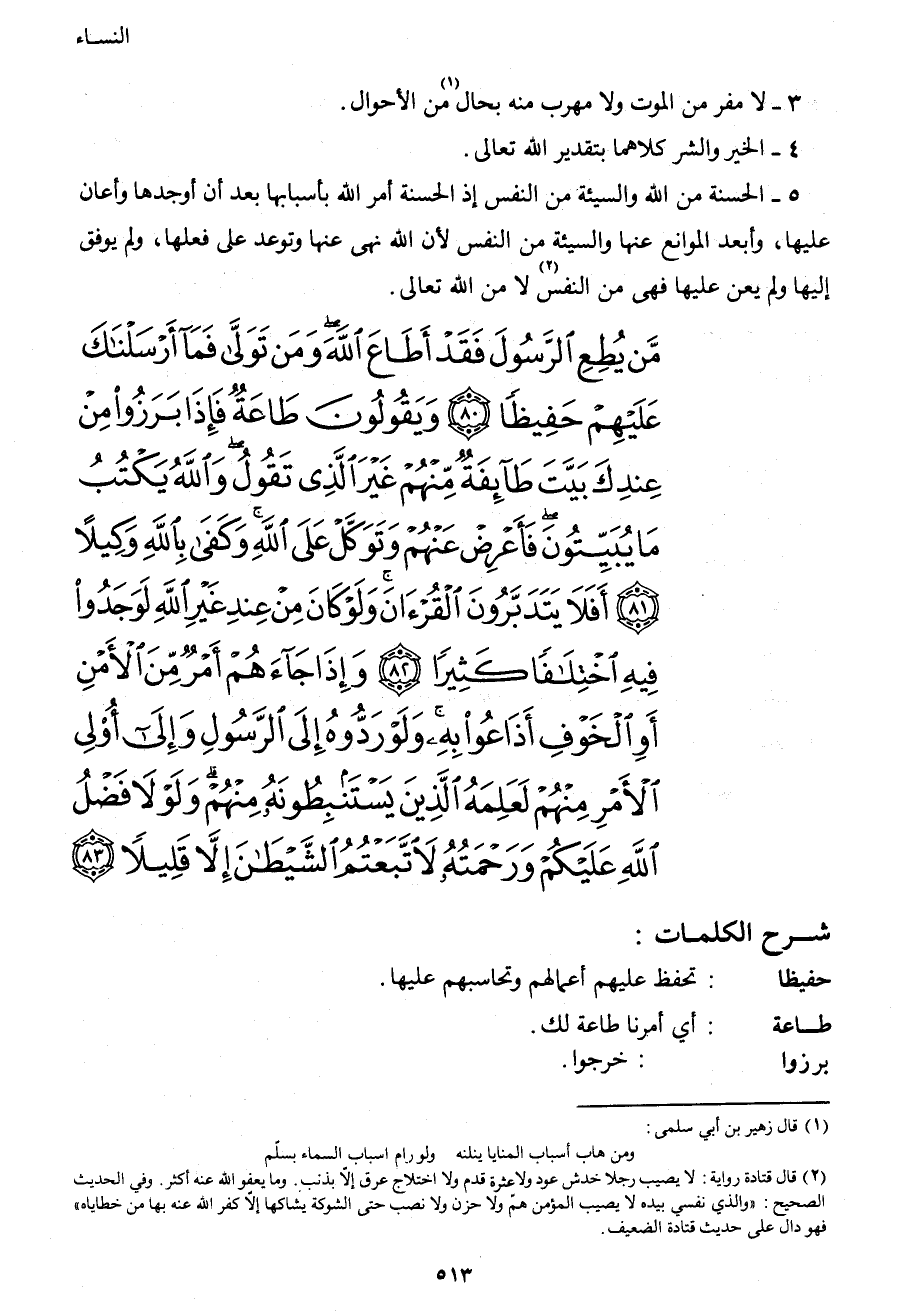 النساء
٣ ـ لا مفر من الموت ولا مهرب منه بحال(١) من الأحوال.
٤ ـ الخير والشر كلاهما بتقدير الله تعالى.
٥ ـ الحسنة من الله والسيئة من النفس إذ الحسنة أمر الله بأسبابها بعد أن أوجدها وأعان
عليها، وأبعد الموانع عنها والسيئة من النفس لأن الله نهى عنها وتوعد على فعلها، ولم يوفق
إليها ولم يعن عليها فهى من النفس(٢) لا من الله تعالى.
مَّن يُطِعِ ٱلرَّسُولَ فَقَدْ أَطَاعَ ٱللَّهَۖ وَمَن تَوَلَّىٰ فَمَآ أَرْسَلْنَٰكَ
عَلَيْهِمْ حَفِيظًا ﴿٨٠﴾ وَيَقُولُونَ طَاعَةٌ فَإِذَا بَرَزُوا۟ مِنْ
عِندِكَ بَيَّتَ طَآئِفَةٌ مِّنْهُمْ غَيْرَ ٱلَّذِى تَقُولُۖ وَٱللَّهُ يَكْتُبُ
مَا يُبَيِّتُونَۖ فَأَعْرِضْ عَنْهُمْ وَتَوَكَّلْ عَلَى ٱللَّهِۚ وَكَفَىٰ بِٱللَّهِ وَكِيلًا
﴿٨١﴾ أَفَلَا يَتَدَبَّرُونَ ٱلْقُرْءَانَۚ وَلَوْ كَانَ مِنْ عِندِ غَيْرِ ٱللَّهِ لَوَجَدُوا۟
فِيهِ ٱخْتِلَٰفًا كَثِيرًا ﴿٨٢﴾ وَإِذَا جَآءَهُمْ أَمْرٌ مِّنَ ٱلْأَمْنِ
أَوِ ٱلْخَوْفِ أَذَاعُوا۟ بِهِۦۚ وَلَوْ رَدُّوهُ إِلَى ٱلرَّسُولِ وَإِلَىٰٓ أُو۟لِى
ٱلْأَمْرِ مِنْهُمْ لَعَلِمَهُ ٱلَّذِينَ يَسْتَنۢبِطُونَهُۥ مِنْهُمْۗ وَلَوْلَا فَضْلُ
ٱللَّهِ عَلَيْكُمْ وَرَحْمَتُهُۥ لَٱتَّبَعْتُمُ ٱلشَّيْطَٰنَ إِلَّا قَلِيلًا ﴿٨٣﴾
شـرح الكلمـات :
حفيظا : تحفظ عليهم أعمالهم وتحاسبهم عليها.
طـاعة : أي أمرنا طاعة لك.
برزوا : خرجوا.
(١) قال زهير بن أبي سلمى:
ومن هاب أسباب المنايا ينلنه ولو رام اسباب السماء بسلّم
(٢) قال قتادة رواية: لا يصيب رجلا خدش عود ولا عثرة قدم ولا اختلاج عرق إلّا بذنب. وما يعفو الله عنه أكثر. وفي الحديث
الصحيح: «والذي نفسي بيده لا يصيب المؤمن همّ ولا حزن ولا نصب حتى الشوكة يشاكها إلّا كفر الله عنه بها من خطاياه»
فهو دال على حديث قتادة الضعيف.
٥١٣